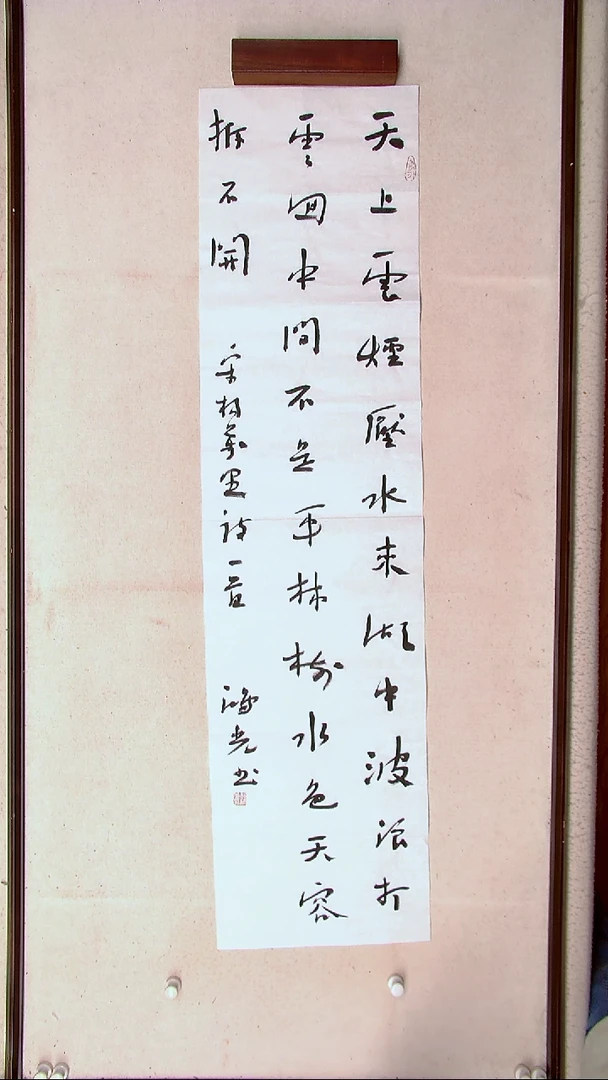 天上雲煙壓水来湖中波浪打
雲回中間不是平林樹水色天容
拆不開
宋楊萬里詩一首
鴻光书